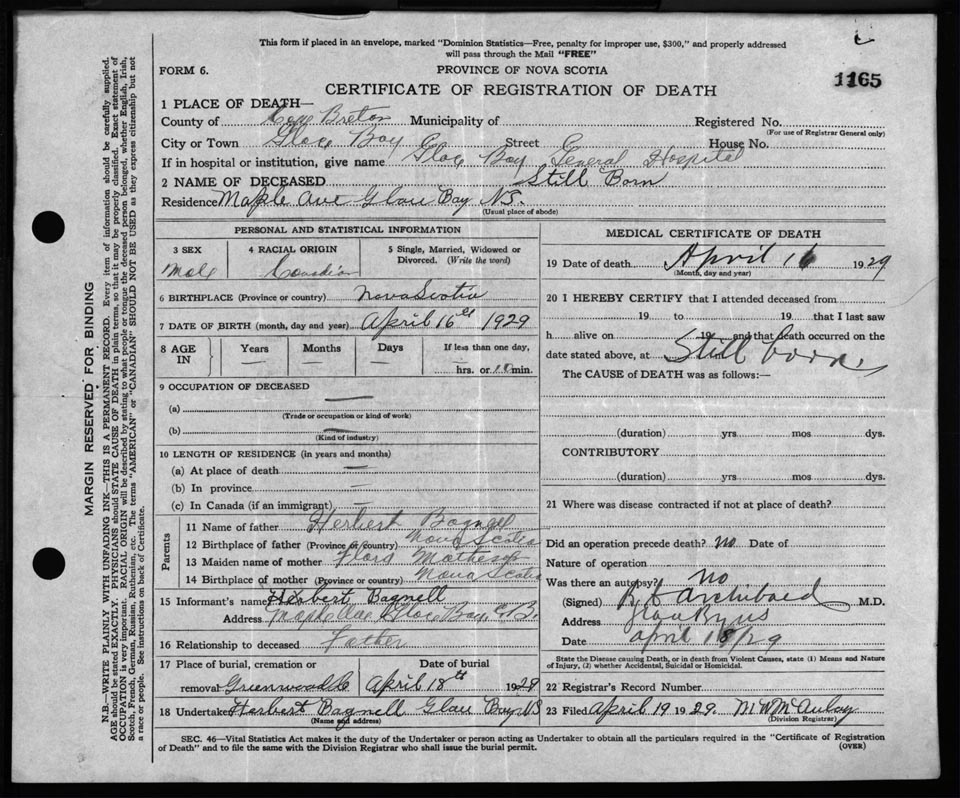 This form if placed in an envelope, marked "Dominion Statistics—Free, penalty for improper use, $300," and properly addressed
will pass through the Mail "FREE"
FORM 6.
PROVINCE OF NOVA SCOTIA
1165
CERTIFICATE OF REGISTRATION OF DEATH
1 PLACE OF DEATH—
County of Cape Breton Municipality of Registered No.
(For use of Registrar General only)
City or Town Glace Bay Street House No.
If in hospital or institution, give name Glace Bay General Hospital
2 NAME OF DECEASED Still Born
Residence Maple Ave Glace Bay N.S.
(Usual place of abode)
PERSONAL AND STATISTICAL INFORMATION
3 SEX
Male
4 RACIAL ORIGIN
Canadian
5 Single, Married, Widowed or
Divorced. (Write the word)
6 BIRTHPLACE (Province or country) Nova Scotia
7 DATE OF BIRTH (month, day and year) April 16th 1929
8 AGE
IN
Years
Months
Days
If less than one day,
hrs. or min.
9 OCCUPATION OF DECEASED
(a)
(Trade or occupation or kind of work)
(b)
(Kind of industry)
10 LENGTH OF RESIDENCE (in years and months)
(a) At place of death
(b) In province
(c) In Canada (if an immigrant)
Parents
11 Name of father Herbert Bagnell
12 Birthplace of father (Province or country) Nova Scotia
13 Maiden name of mother
14 Birthplace of mother (Province or country) Nova Scotia
15 Informant's name Herbert Bagnell
Address Maple Ave Glace Bay C.B.
16 Relationship to deceased Father
17 Place of burial, cremation or
removal Greenwood
Date of burial
April 18th 1929
18 Undertaker Herbert Bagnell Glace Bay N.S
(Name and address)
MEDICAL CERTIFICATE OF DEATH
19 Date of death April 16 1929
(Month, day and year)
20 I HEREBY CERTIFY that I attended deceased from
19 to 19 that I last saw
h alive on 19 and that death occurred on the
date stated above, at Still born.
The CAUSE of DEATH was as follows:—
(duration) yrs mos dys.
CONTRIBUTORY
(duration) yrs mos dys.
21 Where was disease contracted if not at place of death?
Did an operation precede death? no Date of
Nature of operation
Was there an autopsy? no
(Signed) Archibald M.D.
Address Glace Bay NS
Date April 18/29
State the Disease causing Death, or in death from Violent Causes, state (1) Means and Nature
of Injury, (2) whether Accidental, Suicidal or Homicidal.
22 Registrar's Record Number
23 Filed April 19 1929. M. W. McAulay
(Division Registrar)
SEC. 46—Vital Statistics Act makes it the duty of the Undertaker or person acting as Undertaker to obtain all the particulars required in the "Certificate of Registration
of Death" and to file the same with the Division Registrar who shall issue the burial permit.
(OVER)
MARGIN RESERVED FOR BINDING
N.B.—WRITE PLAINLY WITH UNFADING INK—THIS IS A PERMANENT RECORD. Every item of information should be carefully supplied.
AGE should be stated EXACTLY. PHYSICIANS should STATE CAUSE OF DEATH in plain terms, so that it may be properly classified. Exact statement of
OCCUPATION is very important. RACIAL ORIGIN will be described by stating to what people or tongue the deceased person belonged, whether English, Irish,
Scotch, French, German, Russian, Ruthenian, etc. The terms "AMERICAN" or "CANADIAN" SHOULD NOT BE USED as they express citizenship but not
a race or people. See instructions on back of Certificate.